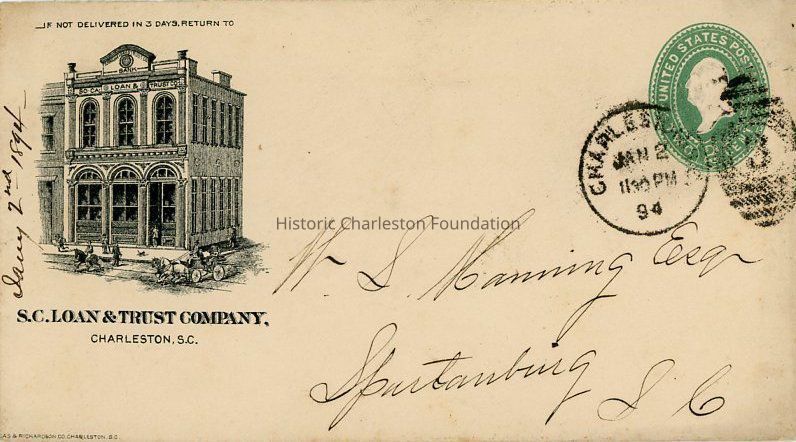 IF NOT DELIVERED IN 3 DAYS, RETURN TO
BANK
SO. CA. LOAN & TRUST CO.
S.C. LOAN & TRUST COMPANY,
CHARLESTON, S.C.
Jany 2nd 1894
UNITED STATES POSTAGE
CHARLESTON
JAN 2
1130 PM
94
Historic Charleston Foundation
W. S. Manning Esqr
Spartanburg S C
& RICHARDSON CO. CHARLESTON, S.C.